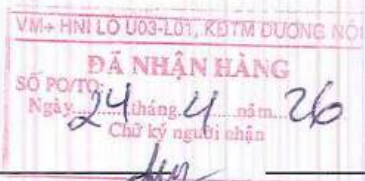 VM+ HNI LÔ U03-L01, KĐTM DƯƠNG NỘI
ĐÃ NHẬN HÀNG
SỐ PO/TO:
Ngày 24 tháng 4 năm 26
Chữ ký người nhận